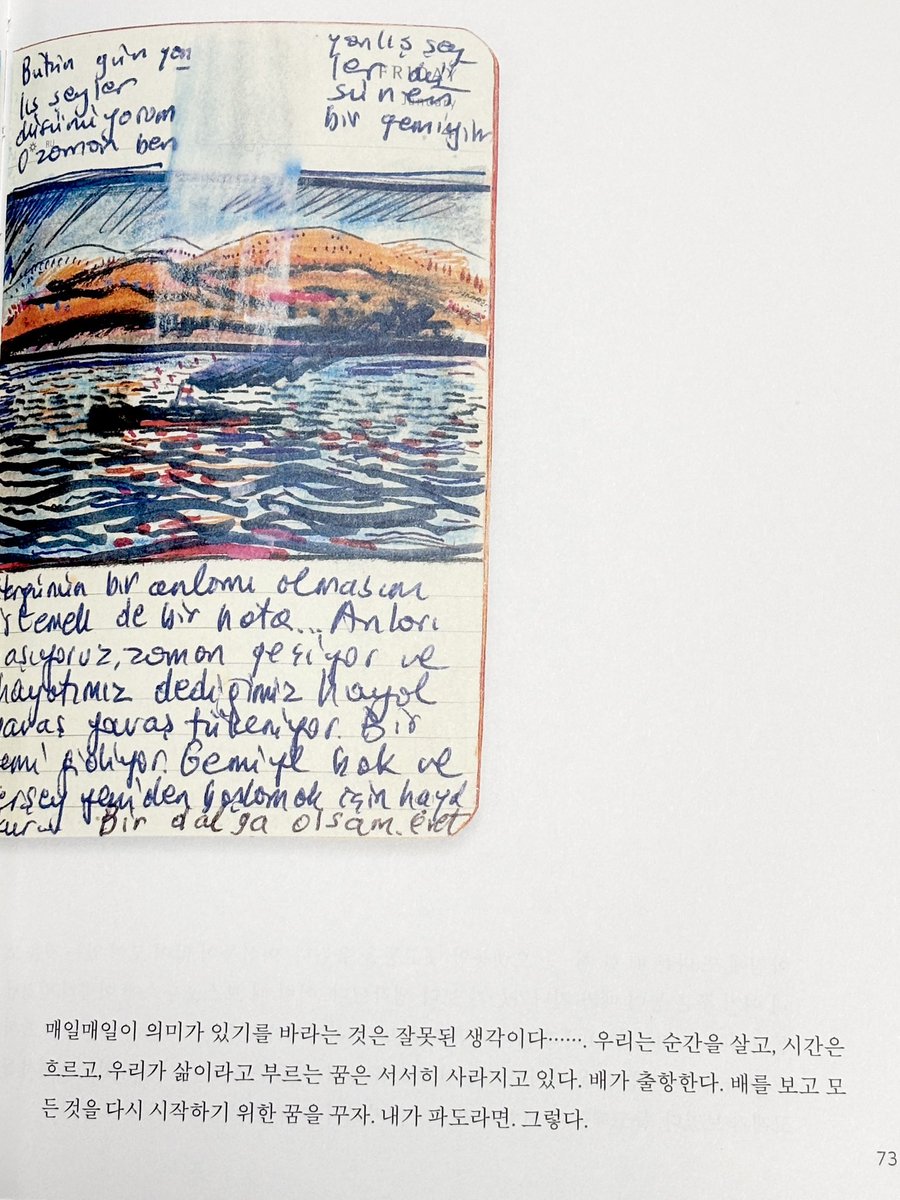 Bütün gün yan
lış şeyler
düşünüyorum
O zaman ben
yanlış şey
ler dü
FRIDAY
şünen
bir gemiyim
Hergünün bir anlamı olmasını
istemek de bir hata... Anları
yaşıyoruz, zaman geçiyor ve
hayatımız dediğimiz hayal
yavaş yavaş tükeniyor. Bir
gemi gidiyor. Gemiye bak ve
herşey yeniden başlamak için hayal
kur. Bir dalga olsam. evet
매일매일이 의미가 있기를 바라는 것은 잘못된 생각이다……. 우리는 순간을 살고, 시간은
흐르고, 우리가 삶이라고 부르는 꿈은 서서히 사라지고 있다. 배가 출항한다. 배를 보고 모
든 것을 다시 시작하기 위한 꿈을 꾸자. 내가 파도라면. 그렇다.
73